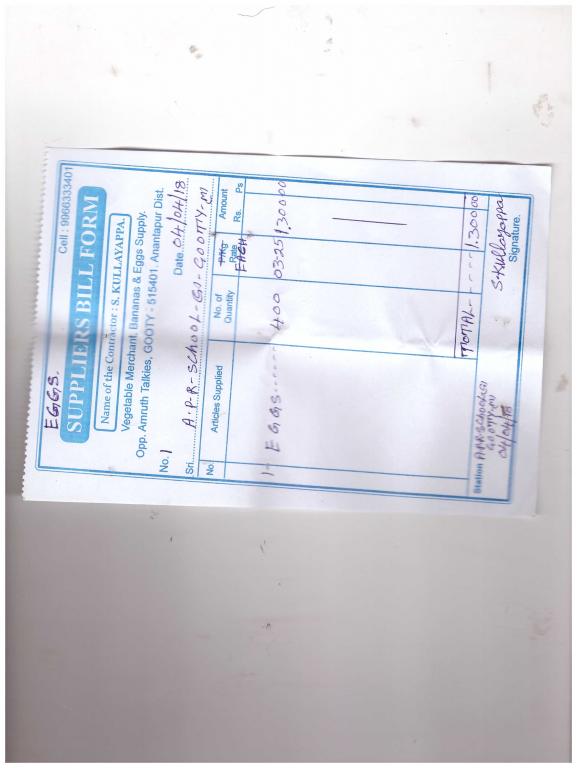 EGGS.
Cell : 9966333401
SUPPLIERS BILL FORM
Name of the Contractor : S. KULLAYAPPA.
Vegetable Merchant, Bananas & Eggs Supply.
Opp. Amruth Talkies, GOOTY - 515401, Anantapur Dist.
No. 1 Date 04/04/18
Sri A.P.R-SCHOOL-G1-GOOTY-M1
No. Articles Supplied No. of Quantity P/Kg. Rate EACH Amount Rs. Ps
1- EGGS...... 400 03-25 1,300 00
TOTAL----- 1,300 00
Station A.P.R.SCHOOL-G1
GOOTY-M1
04/04/18
S. Kullayappa
Signature.